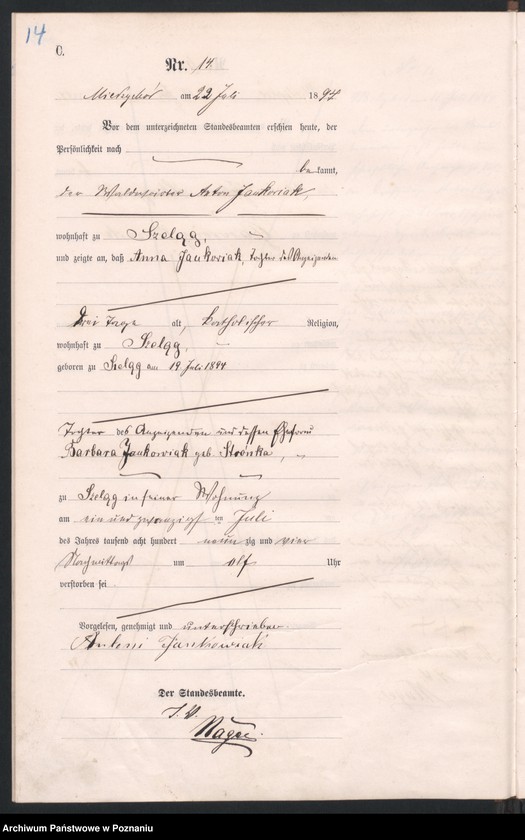 14
C.
Nr. 14.
am 22 Juli 1894
Vor dem unterzeichneten Standesbeamten erschien heute, der
Persönlichkeit nach
be kannt,
der Anton Jankoviak,
wohnhaft zu Szelgg,
und zeigte an, daß Anna Jankoviak, Tochter des Anzeigenden
drei Tage alt, katholischer Religion,
wohnhaft zu Szelgg,
geboren zu Szelgg am 19. Juli 1894
Tochter des Anzeigenden und dessen Ehefrau
Barbara Jankowiak geb. Stronka,
zu Szelgg in seiner Wohnung
am ein und zwanzigst en Juli
des Jahres tausend acht hundert neun zig und vier
Nachmittags um elf Uhr
verstorben sei
Vorgelesen, genehmigt und unterschrieben.
Antoni Jankowiak
Der Standesbeamte.
J. V.
Archiwum Państwowe w Poznaniu